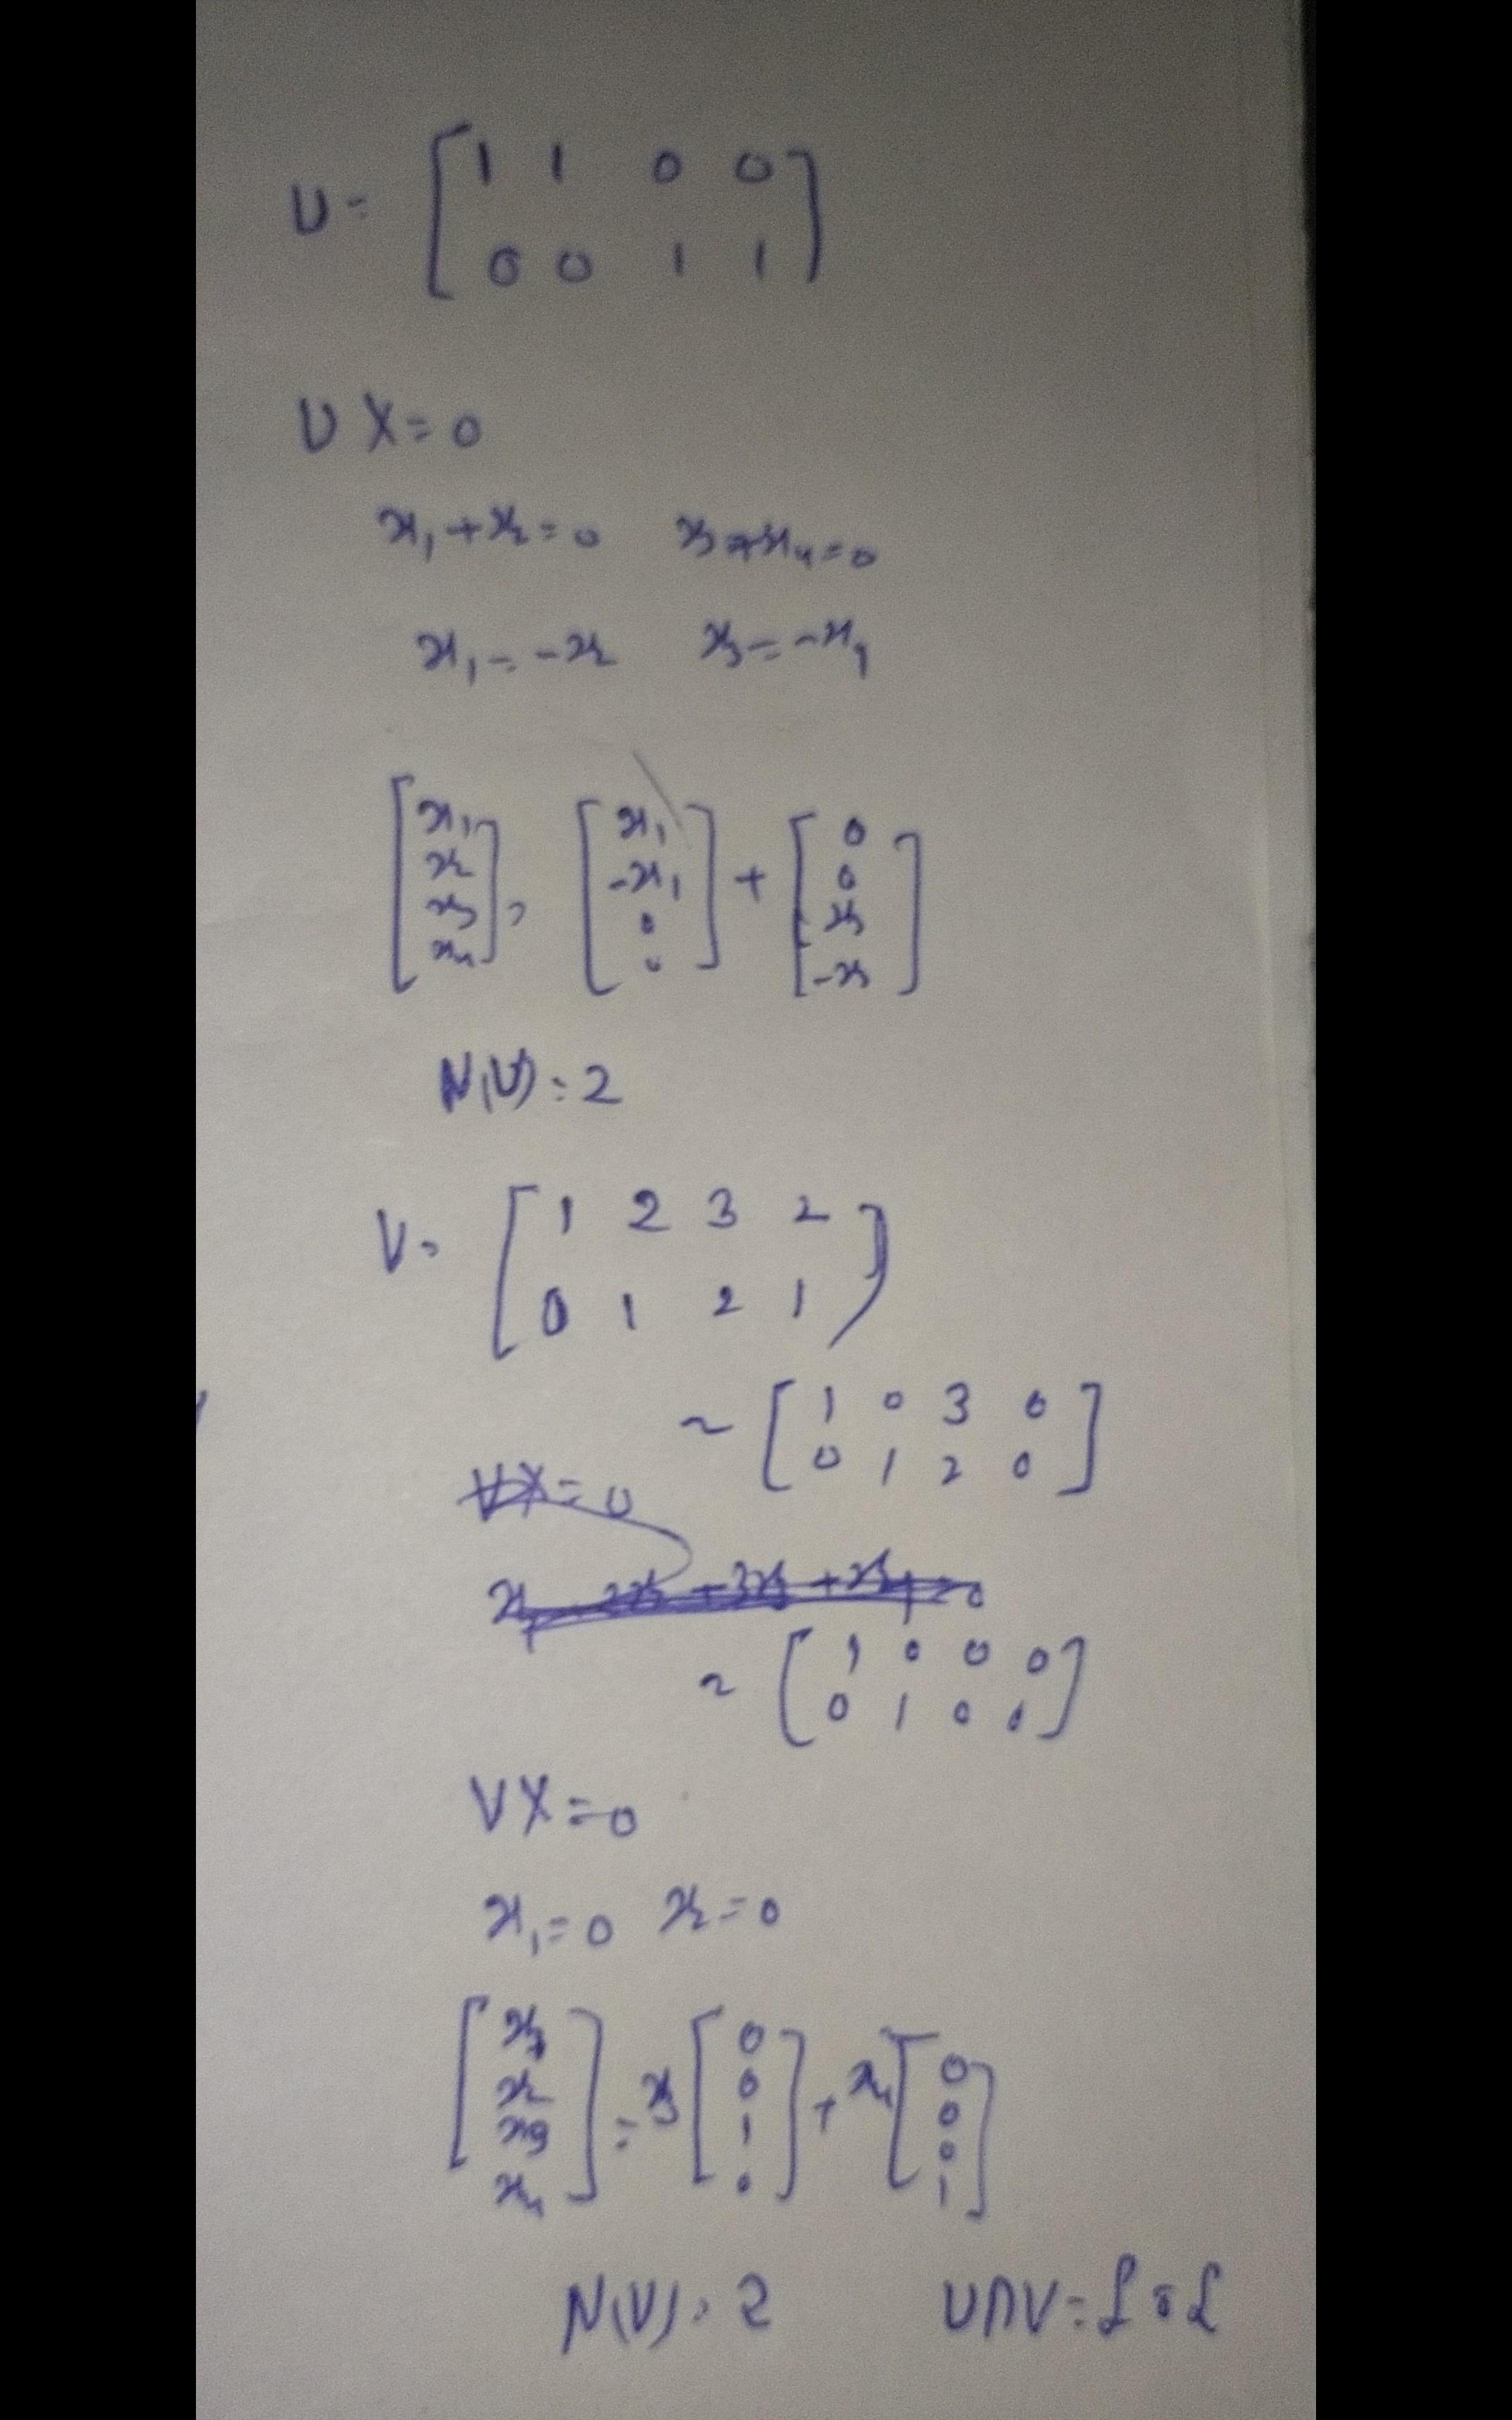 U = [1 1 0 0
0 0 1 1]
UX = 0
x₁ + x₂ = 0 x₃ + x₄ = 0
x₁ = -x₂ x₃ = -x₄
[x₁ x₂ x₃ x₄] = [x₁ -x₁ 0 0] + [0 0 x₃ -x₃]
N(U) = 2
V = [1 2 3 2
0 1 2 1]
~ [1 0 3 0
0 1 2 0]
VX = 0
~ [1 0 0 0
0 1 0 0]
VX = 0
x₁ = 0 x₂ = 0
[x₁ x₂ x₃ x₄] = x₃ [0 0 1 0] + x₄ [0 0 0 1]
N(V) = 2 U∩V = {0}